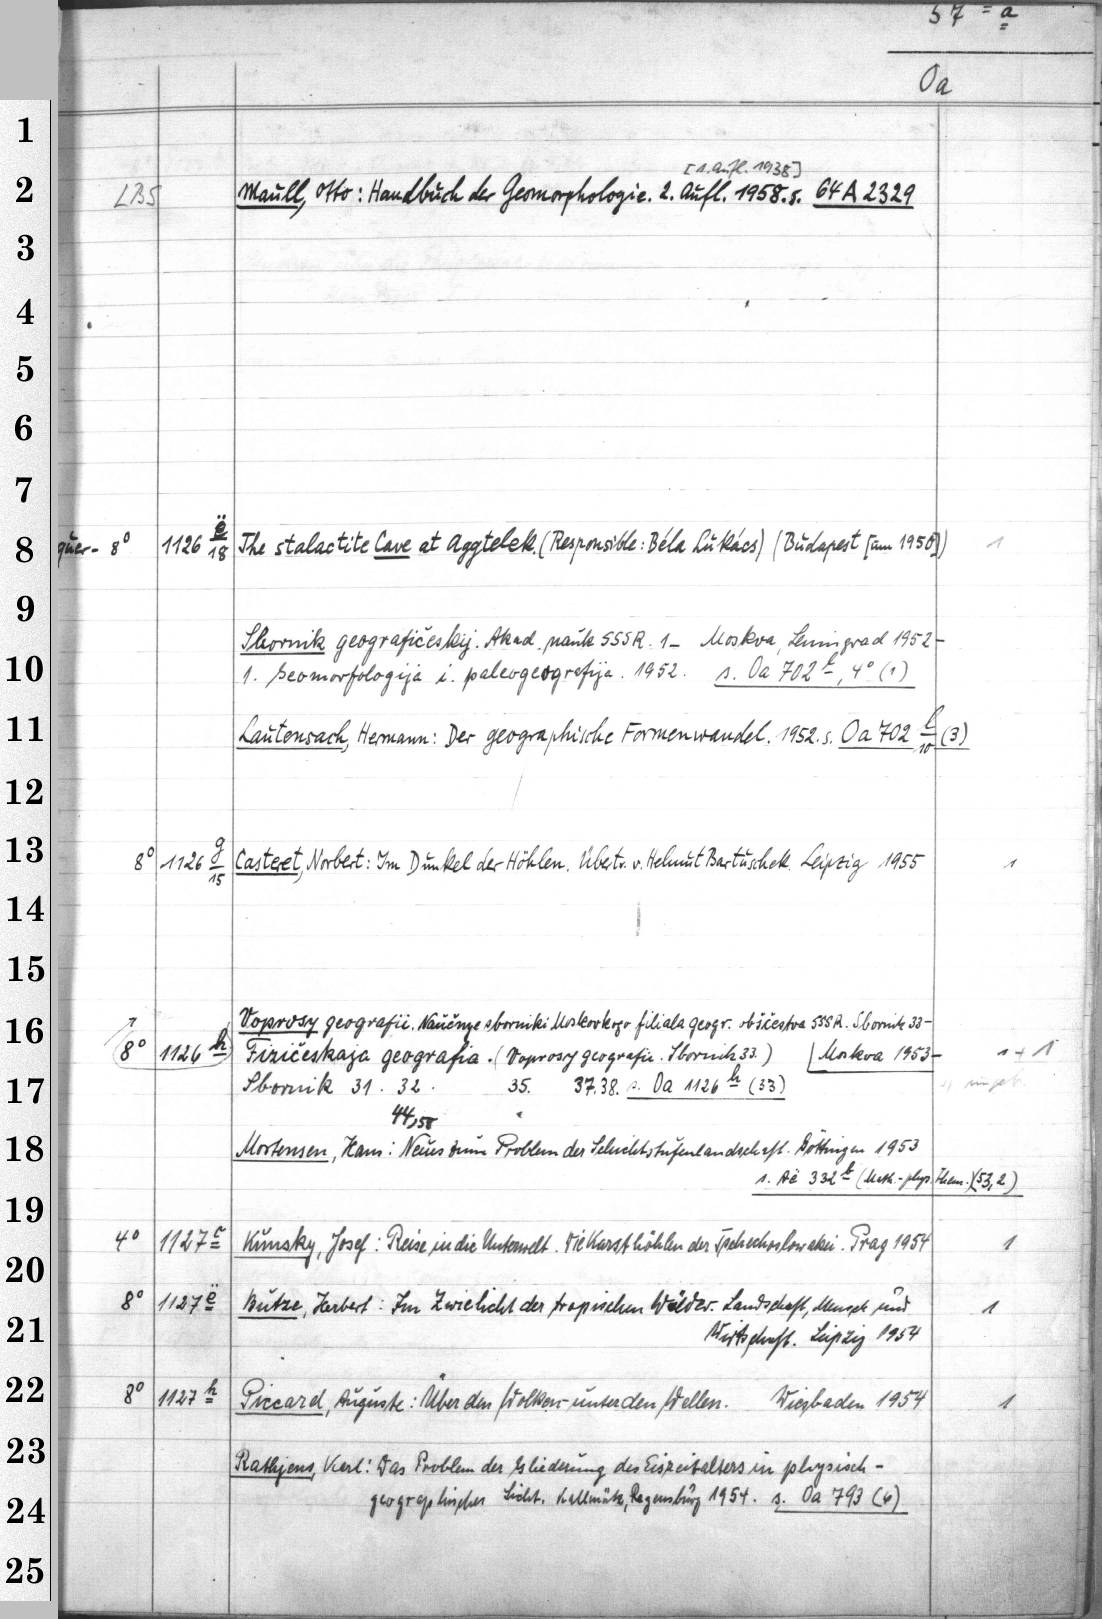 57 = a
Oa
1
[1. Aufl. 1938]
2 LBS Maull, Otto: Handbuch der Geomorphologie. 2. Aufl. 1958. s. 64 A 2329
3
4
5
6
7
8 quer- 8° 1126 ë/18 The stalactite Cave at Aggtelek. (Responsible: Béla Lukács) (Budapest [um 1950]) 1
9
Sbornik geografičeskij. Akad. nauk SSSR. 1- Moskva, Leningrad 1952-
10 1. Geomorfologija i. paleogeografija. 1952. s. Oa 702 f, 4° (1)
11 Lautensach, Hermann: Der geographische Formenwandel. 1952. s. Oa 702 l/10 (3)
12
13 8° 1126 g/15 Casteret, Norbert: Im Dunkel der Höhlen. Übertr. v. Helmut Bartuschek. Leipzig 1955 1
14
15
16 Voprosy geografii. Naučnye sborniki Moskovkogo filiala geogr. obščestva SSSR. Sbornik 33-
8° 1126 h Fizičeskaja geografia. (Voprosy geografii. Sbornik 33.) Moskva 1953- 1 + 1
17 Sbornik 31. 32. 35. 37.38. s. Oa 1126 h (33)
44,58
18 Mortensen, Hans: Neues zum Problem der Schichtstufenlandschaft. Göttingen 1953
s. Aë 332 b (Mth.-phys. Item.) (53,2)
19
4° 1127 c Kunsky, Josef: Reise in die Unterwelt. Die Karsthöhlen der Tschechoslowakei. Prag 1954 1
20
8° 1127 ë Butze, Herbert: Im Zwielicht der tropischen Wälder. Landschaft, Mensch und 1
21 Wirtschaft. Leipzig 1954
22 8° 1127 h Piccard, Auguste: Über den Wolken - unter den Wellen. Wiesbaden 1954 1
23 Rathjens, Karl: Das Problem der Gliederung des Eiszeitalters in physisch-
24 geographischer Sicht. Kallmünz, Regensburg 1954. s. Oa 793 (6)
25